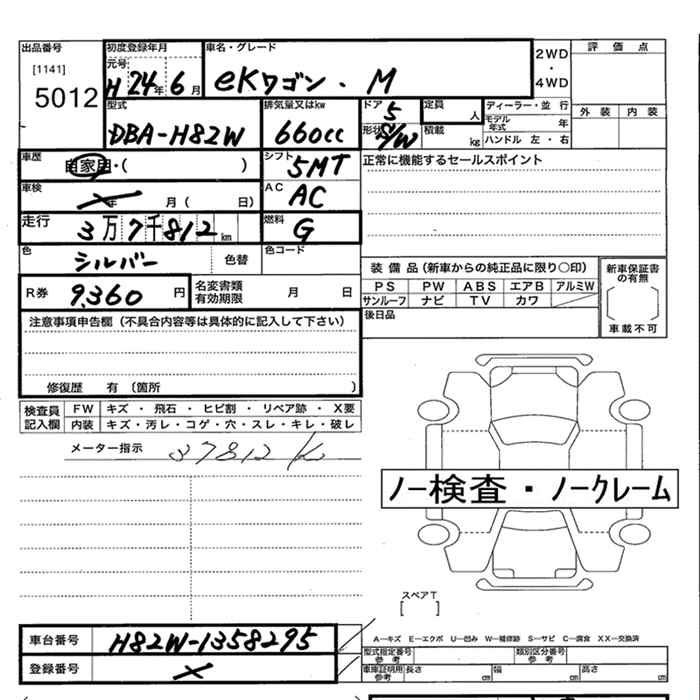 出品番号
[1141]
5012
初度登録年月
元号
H 24年 6月
車名・グレード
eKワゴン・M
2WD
・
4WD
評価点
外装 内装
型式
DBA-H82W
排気量又はkw
660cc
ドア 5
形状 S/W
定員 人
積載 kg
ディーラー・並行
モデル年式 年
ハンドル 左・右
車歴
自家用・( )
シフト
5MT
正常に機能するセールスポイント
車検
年 月( 日)
AC
AC
走行
3万7千812km
燃料
G
色
シルバー
色替
色コード
装備品(新車からの純正品に限り〇印)
PS PW ABS エアB アルミW
サンルーフ ナビ TV カワ
新車保証書の有無
車載不可
R券 9,360 円
名変書類有効期限 月 日
後日品
注意事項申告欄(不具合内容等は具体的に記入して下さい)
修復歴 有(箇所 )
検査員記入欄
FW キズ・飛石・ヒビ割・リペア跡・X要
内装 キズ・汚レ・コゲ・穴・スレ・キレ・破レ
メーター指示 37812 K
ノー検査・ノークレーム
スペアT
[ ]
車台番号 H82W-1358295
登録番号 ×
A―キズ E―エクボ U―凹み W―補修跡 S―サビ C―腐食 XX―交換済
型式指定番号 参考
類別区分番号 参考
車庫証明用 参考 長さ cm 幅 cm 高さ cm